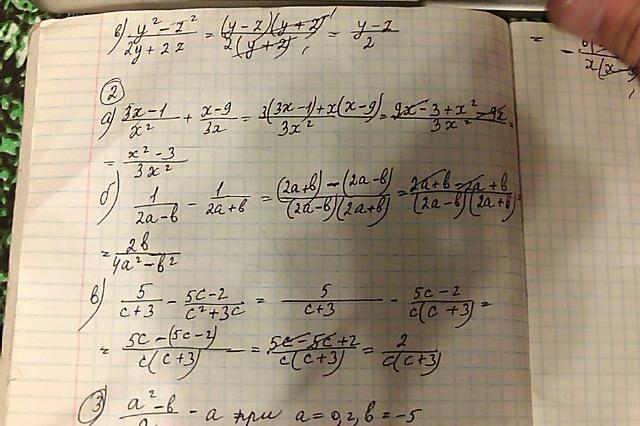 в) (y² - z²)/(2y + 2z) = ((y - z)(y + z))/(2(y + z)) = (y - z)/2
②
а) (3x - 1)/x² + (x - 9)/3x = (3(3x - 1) + x(x - 9))/3x² = (9x - 3 + x² - 9x)/3x² =
= (x² - 3)/3x²
б) 1/(2a - b) - 1/(2a + b) = ((2a + b) - (2a - b))/((2a - b)(2a + b)) = (2a + b - 2a + b)/((2a - b)(2a + b)) =
= 2b/(4a² - b²)
в) 5/(c + 3) - (5c - 2)/(c² + 3c) = 5/(c + 3) - (5c - 2)/(c(c + 3)) =
= (5c - (5c - 2))/(c(c + 3)) = (5c - 5c + 2)/(c(c + 3)) = 2/(c(c + 3))
③ a² - b - a при a = 0,2, b = -5